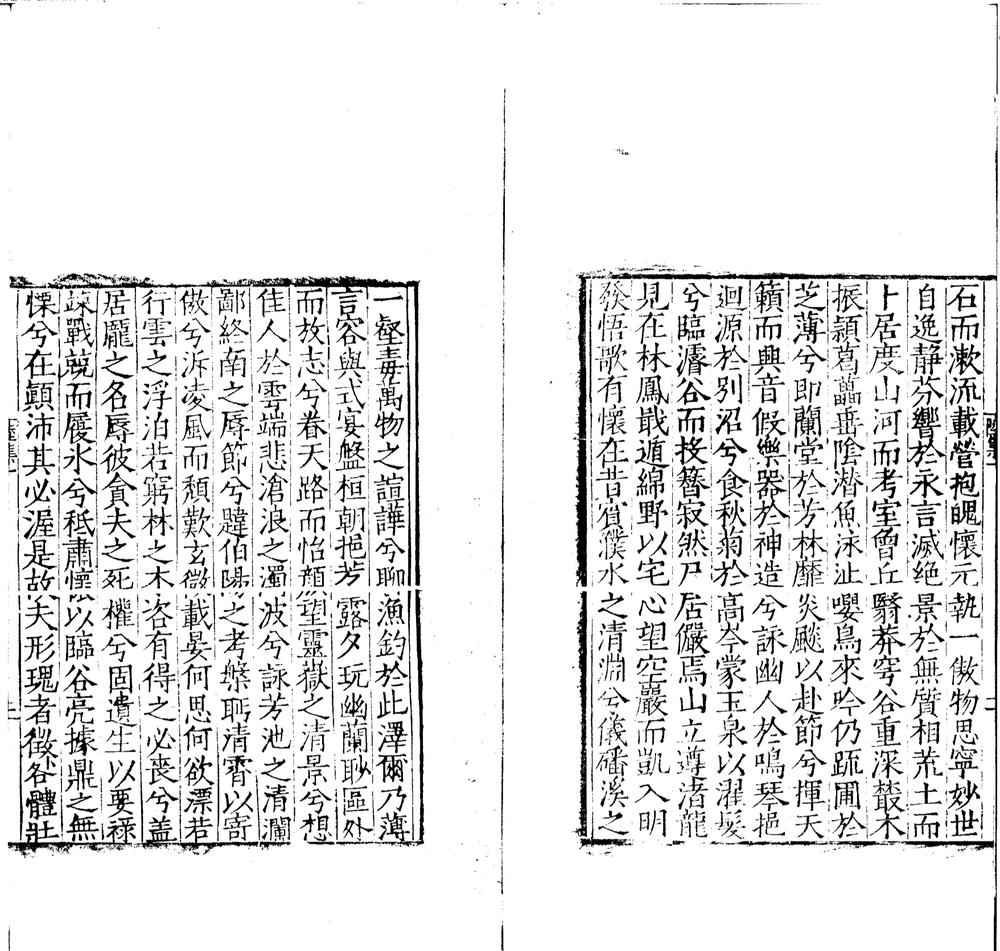 石而漱流載營抱魄懷元執一傲物思寧妙世
自逸靜芬響於永言滅絶景於無質相荒土而
卜居度山河而考室曾丘翳莽穹谷重深叢木
振穎葛藟垂陰潛魚泳沚嚶鳥來吟仍疏圃於
芝薄兮即蘭堂於芳林靡炎飈以赴節兮揮天
籟而興音假樂器於神造兮詠幽人於鳴琴挹
迴源於別沼兮食秋菊於高岑蒙玉泉以濯髮
兮臨濬谷而投簪寂然尸居儼焉山立遵渚龍
見在林鳳戢遁綿野以宅心望空巖而凱入明
發悟歌有懷在昔賓濮水之清淵兮儀磻溪之
一壑毒萬物之諠譁兮聊漁釣於此澤爾乃薄
言容與式宴盤桓朝挹芳露夕玩幽蘭眇區外
而放志兮眷天路而怡顔望靈嶽之清景兮想
佳人於雲端悲滄浪之濁波兮詠芳池之清瀾
鄙終南之辱節兮韙伯陽之考槃眄清霄以寄
傲兮泝凌風而頽歎玄微載晏何思何欲漂若
行雲之浮泊若窮林之木咨有得之必喪兮盖
居寵之名辱彼貪夫之死權兮固遺生以要祿
竦戰兢而履氷兮秪肅懷以臨谷亮據鼎之無
慄兮在顛沛其必渥是故夫形瑰者徵各體壯